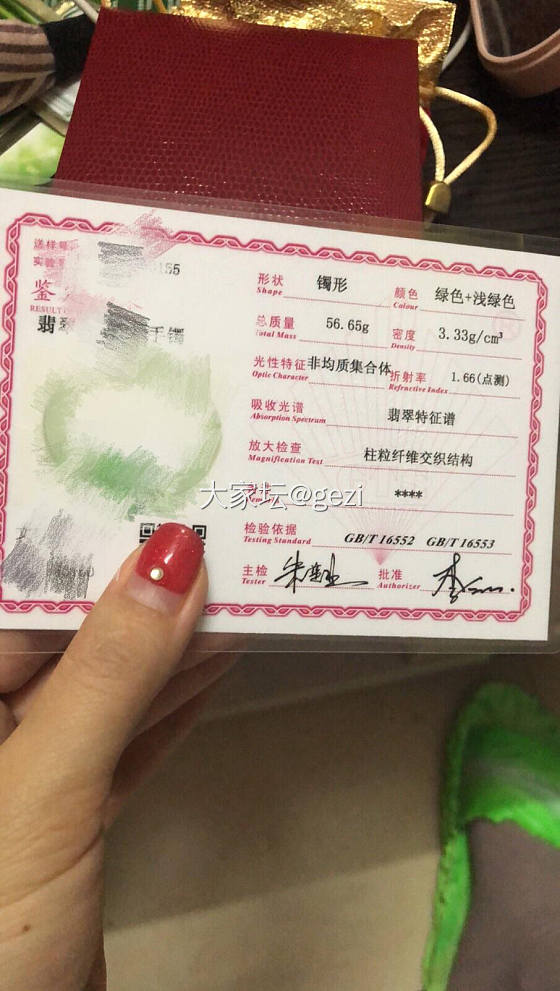 送样号
实验
155
鉴
RESULT O
翡翠 手镯
形状 镯形 颜色 绿色+浅绿色
Shape Colour
总质量 56.65g 密度 3.33g/cm³
Total Mass Density
光性特征 非均质集合体 折射率 1.66(点测)
Optic Character Refractive Index
吸收光谱 翡翠特征谱
Absorption Spectrum
放大检查 柱粒纤维交织结构
Magnification Test
****
大家坛@gezi
检验依据 GB/T 16552 GB/T 16553
Testing Standard
主检 批准
Tester Authorizer